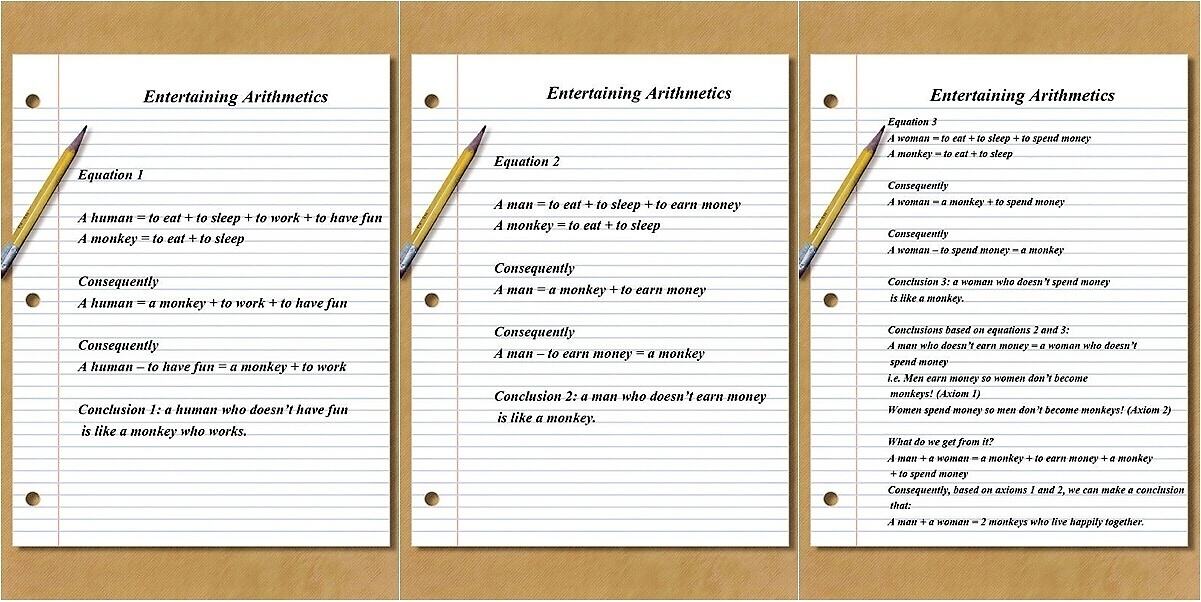 Entertaining Arithmetics
Equation 1
A human = to eat + to sleep + to work + to have fun
A monkey = to eat + to sleep
Consequently
A human = a monkey + to work + to have fun
Consequently
A human – to have fun = a monkey + to work
Conclusion 1: a human who doesn't have fun
is like a monkey who works.
Entertaining Arithmetics
Equation 2
A man = to eat + to sleep + to earn money
A monkey = to eat + to sleep
Consequently
A man = a monkey + to earn money
Consequently
A man – to earn money = a monkey
Conclusion 2: a man who doesn't earn money
is like a monkey.
Entertaining Arithmetics
Equation 3
A woman = to eat + to sleep + to spend money
A monkey = to eat + to sleep
Consequently
A woman = a monkey + to spend money
Consequently
A woman – to spend money = a monkey
Conclusion 3: a woman who doesn't spend money
is like a monkey.
Conclusions based on equations 2 and 3:
A man who doesn't earn money = a woman who doesn't
spend money
i.e. Men earn money so women don't become
monkeys! (Axiom 1)
Women spend money so men don't become monkeys! (Axiom 2)
What do we get from it?
A man + a woman = a monkey + to earn money + a monkey
+ to spend money
Consequently, based on axioms 1 and 2, we can make a conclusion
that:
A man + a woman = 2 monkeys who live happily together.